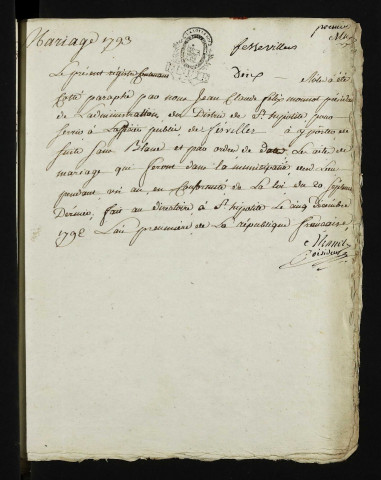 Mariage 1793
premier
fessevillers
Le présent registre Contenant Dix Rôles a été
Cotté paraphé par nous Jean Claude félix monnot président
de L'administration du District de St hypolite pour
servir à L'officier public de fesviller à y porter de
suitte sans Blanc et par ordre de date Le acte de
mariage qui seront dans la municipalité
pendant en Conformité de la Loi du 20 septembre
Dernier, fait au directoire à St hipolite Le cinq decembre
1792 L'an premiere de La république francaise
Monnot
président